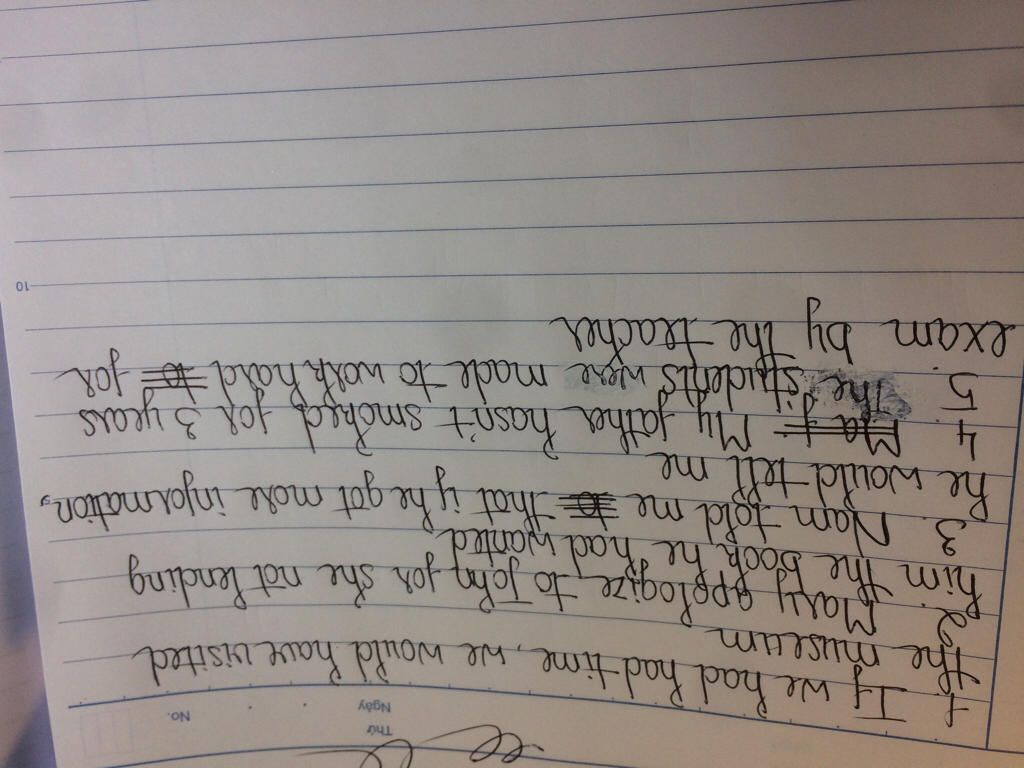 Thứ
Ngày
No.
1. If we had had time, we would have visited
the museum
2. Mary appologize to John for she not lending
him the book he had wanted
3. Nam told me that if he got more information,
he would tell me
4. My father hasn't smoked for 3 years
5. The students were made to work hard for
exam by the teacher
10